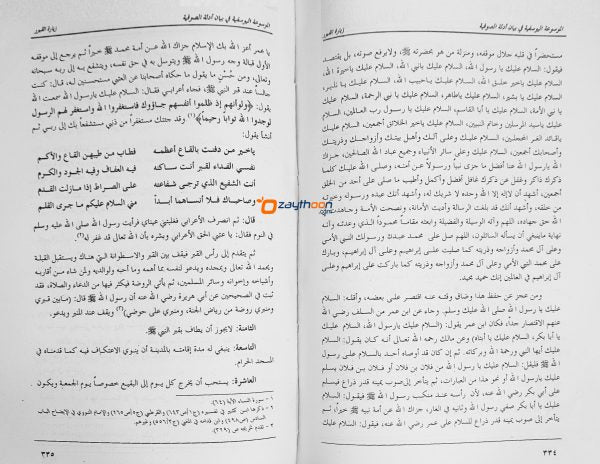 الموسوعة اليوسفية في بيان أدلة الصوفية
زيارة القبور
مستحضراً في قلبه جلال موقفه، ومنزلة من هو بحضرته ﷺ، ولا يرفع صوته، بل يقتصد
فيقول: السلام عليك يا رسول الله، السلام عليك يا نبي الله، السلام عليك يا خيرة الله،
السلام عليك يا خير خلق الله، السلام عليك يا حبيب الله، السلام عليك يا نذير،
السلام عليك يا بشير، السلام عليك يا طاهر، السلام عليك يا نبي الرحمة، السلام عليك
يا نبي الأمة، السلام عليك يا أبا القاسم، السلام عليك يا رسول رب العالمين، السلام
عليك يا سيد المرسلين وخاتم النبيين، السلام عليك يا خير الخلائق أجمعين، السلام عليك
يا قائد الغر المحجلين، السلام عليك وعلى آلك وأهل بيتك وأزواجك وذريتك
وأصحابك أجمعين، السلام عليك وعلى سائر الأنبياء وجميع عباد الله الصالحين، جزاك
الله يا رسول الله عنا أفضل ما جزى نبياً ورسولاً عن أمته، وصلى الله عليك كلما
ذكرك ذاكر وغفل عن ذكرك غافل أفضل وأكمل وأطيب ما صلى على أحد من الخلق
أجمعين، أشهد أن لا إله إلا الله وحده لا شريك له، وأشهد أنك عبده ورسوله وخيرته
من خلقه، وأشهد أنك قد بلغت الرسالة وأديت الأمانة، ونصحت الأمة وجاهدت في
الله حق جهاده، اللهم وآته الوسيلة والفضيلة وابعثه مقاماً محموداً الذي وعدته وآته
نهاية ما ينبغي أن يسأله السائلون، اللهم صل على محمد عبدك ورسولك النبي الأمي
وعلى آل محمد وأزواجه وذريته كما صليت على إبراهيم وعلى آل إبراهيم، وبارك
على محمد النبي الأمي وعلى آل محمد وأزواجه وذريته كما باركت على إبراهيم وعلى
آل إبراهيم في العالمين إنك حميد مجيد.
ومن عجز عن حفظ هذا وضاق وقته عنه اقتصر على بعضه، وأقله: السلام
عليك يا رسول الله صلى الله عليك وسلم. وجاء عن ابن عمر من السلف رضي الله
عنهم الاقتصار جداً، فكان ابن عمر يقول: (السلام عليك يا رسول الله، السلام عليك
يا أبا بكر، السلام عليك يا أبتاه) وعن مالك رحمه الله تعالى أنه كان يقول: السلام
عليك أيها النبي ورحمة الله وبركاته. ثم إن كان قد أوصاه أحد بالسلام على رسول
الله ﷺ فليقل: السلام عليك يا رسول الله من فلان بن فلان أو فلان بن فلان يسلم
عليك يا رسول الله أو نحو هذا من العبارات، ثم يتأخر إلى صوب يمينه قدر ذراع فيسلم
على أبي بكر رضي الله عنه، لأن رأسه عند منكب رسول الله ﷺ فيقول: السلام
عليك يا أبا بكر صفي رسول الله وثانيه في الغار، جزاك الله عن أمة نبيه ﷺ خيراً، ثم
يتأخر إلى صوب يمينه قدر ذراع للسلام على عمر رضي الله عنه، فيقول: السلام عليك
٣٣٤
الموسوعة اليوسفية في بيان أدلة الصوفية
زيارة القبور
يا عمر أعز الله بك الإسلام جزاك الله عن أمة محمد ﷺ خيراً ثم يرجع إلى موقفه
الأول قبالة وجه رسول الله ﷺ ويتوسل به في حق نفسه، ويتشفع به إلى ربه سبحانه
وتعالى، ومن حُسْنِ ما يقول ما حكاه أصحابنا عن العتبي مستحسنين له، قال: كنت
جالساً عند قبر النبي ﷺ، فجاء أعرابي فقال: السلام عليك يا رسول الله سمعت الله
يقول: ﴿ولو أنهم إذ ظلموا أنفسهم جاؤوك فاستغفروا الله واستغفر لهم الرسول
لوجدوا الله تواباً رحيماً﴾(١) وقد جئتك مستغفراً من ذنبي مستشفعاً بك إلى ربي ثم
أنشأ يقول:
يا خير من دفنت بالقاع أعظمه فطاب من طيبهن القاع والأكم
نفسي الفداء لقبر أنت ساكنه فيه العفاف وفيه الجود والكرم
أنت الشفيع الذي ترجى شفاعته على الصراط إذا ما زلت القدم
وصاحباك فلا أنساهما أبداً مني السلام عليكم ما جرى القلم
قال: ثم انصرف الأعرابي فغلبتني عيناي فرأيت رسول الله صلى الله عليه وسلم
في النوم فقال: يا عتبي الحق الأعرابي وبشره بأن الله تعالى قد غفر له(٢).
ثم يتقدم إلى رأس القبر فيقف بين القبر والأسطوانة التي هناك ويستقبل القبلة
ويحمد الله تعالى ويمجده ويدعو لنفسه بما أهمه وما أحبه ولوالديه ولمن شاء من أقاربه
وأشياخه وإخوانه وسائر المسلمين، ثم يأتي الروضة فيكثر فيها من الدعاء والصلاة، فقد
ثبت في الصحيحين عن أبي هريرة رضي الله عنه أن رسول الله ﷺ قال: (ما بين قبري
ومنبري روضة من رياض الجنة، ومنبري على حوضي)(٣) ويقف عند المنبر ويدعو.
الثامنة: لا يجوز أن يطاف بقبر النبي ﷺ.
التاسعة: ينبغي له مدة إقامته بالمدينة أن ينوي الاعتكاف فيه كما قدمناه في
المسجد الحرام.
العاشرة: يستحب أن يخرج كل يوم إلى البقيع خصوصاً يوم الجمعة ويكون
١ - سورة النساء الآية (٦٤).
٣٣٥
Ozaythoon.com